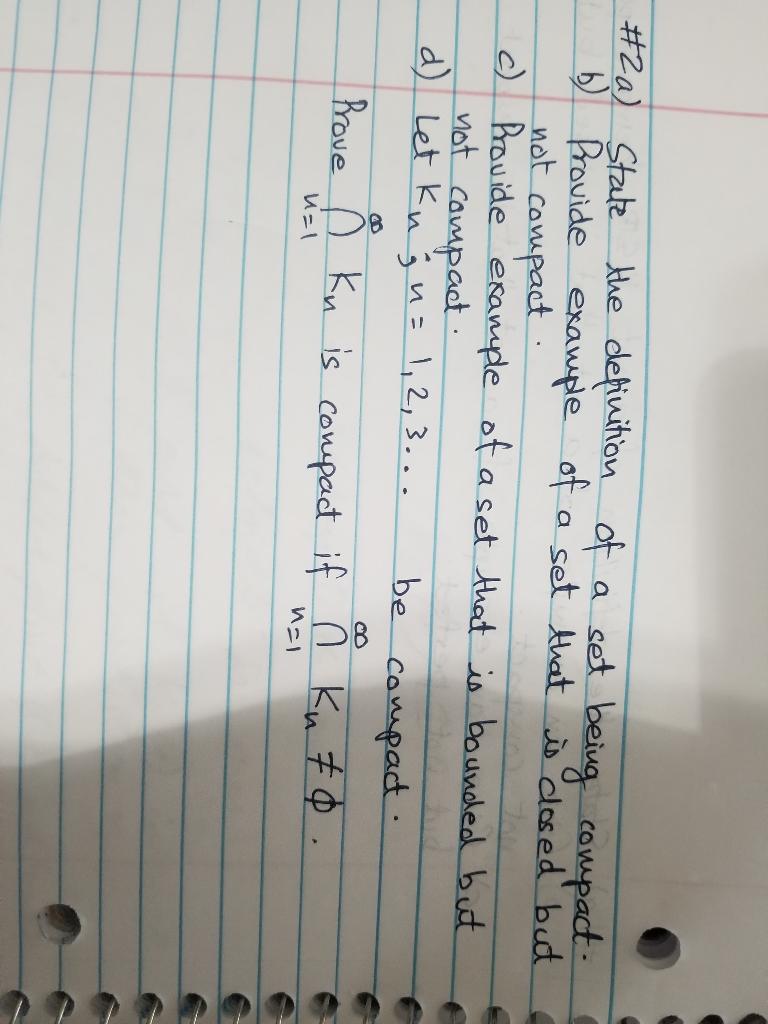 #2a) State the definition of a set being compact.
b) Provide example of a set that is closed but
not compact.
c) Provide example of a set that is bounded but
not compact.
d) Let Kn ; n = 1, 2, 3... be compact.
Prove ∞⋂n=1 Kn is compact if ∞⋂n=1 Kn ≠ ϕ.